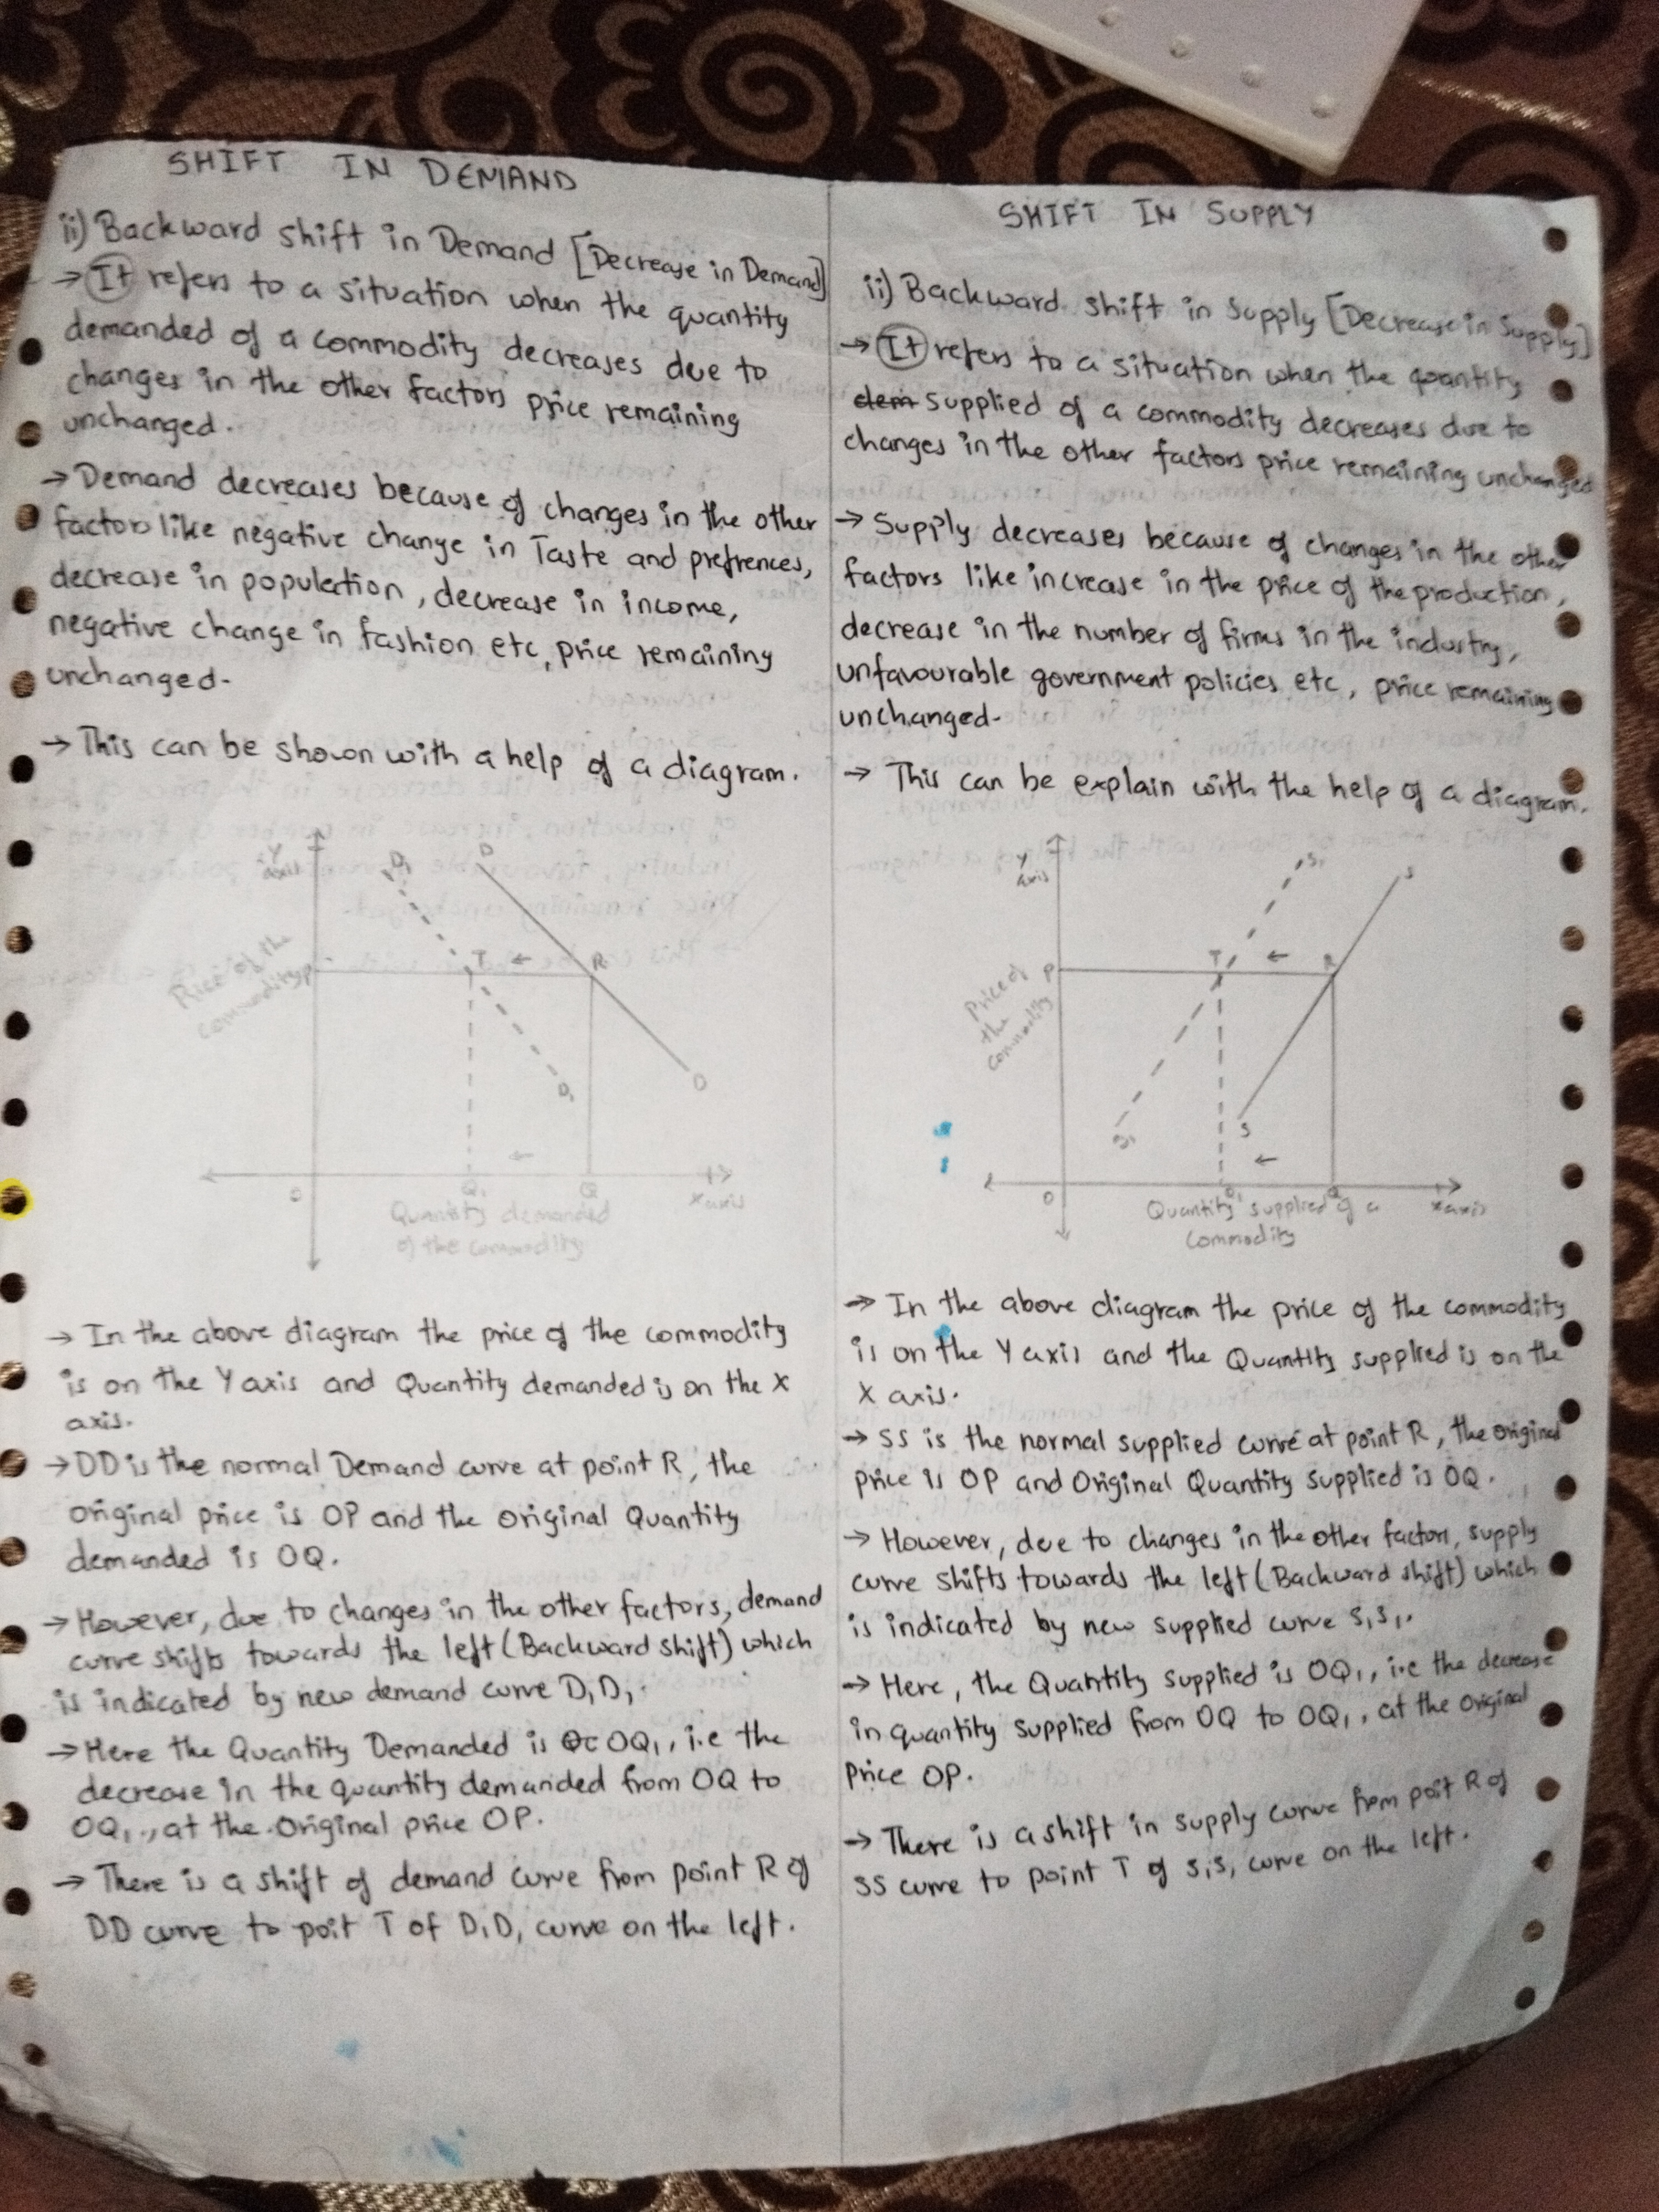 SHIFT IN DEMAND
ii) Backward shift in Demand [Decrease in Demand]
→ It refers to a situation when the quantity
demanded of a commodity decreases due to
changes in the other factors price remaining
unchanged.
→ Demand decreases because of changes in the other
factors like negative change in Taste and prefrences,
decrease in population, decrease in income,
negative change in fashion etc, price remaining
unchanged-
→ This can be shown with a help of a diagram.
Y
axis
D1
D
Price of the
commodity
P
T
←
R
D1
D
←
O
Q1
Q
X axis
Quantity demanded
of the commodity
→ In the above diagram the price of the commodity
is on the Y axis and Quantity demanded is on the X
axis.
→ DD is the normal Demand curve at point R, the
original price is OP and the original Quantity
demanded is OQ.
→ However, due to changes in the other factors, demand
curve shifts towards the left (Backward shift) which
is indicated by new demand curve D1D1.
→ Here the Quantity Demanded is OQ1, i.e the
decrease in the quantity demanded from OQ to
OQ1, at the Original price OP.
→ There is a shift of demand curve from point R of
DD curve to poit T of D1D1 curve on the left.
SHIFT IN SUPPLY
ii) Backward shift in Supply [Decrease in Supply]
→ It refers to a situation when the quantity
dem supplied of a commodity decreases due to
changes in the other factors price remaining unchanged
→ Supply decreases because of changes in the other
factors like increase in the price of the production,
decrease in the number of firms in the industry,
unfavourable government policies etc, price remaining
unchanged-
→ This can be explain with the help of a diagram.
Y
axis
S1
S
Price of
the
commodity
P
T
←
R
S1
S
←
O
Q1
Q
X axis
Quantity supplied of a
commodity
→ In the above diagram the price of the commodity
is on the Y axis and the Quantity supplied is on the
X axis.
→ SS is the normal supplied curve at point R, the original
price is OP and Original Quantity supplied is OQ.
→ However, due to changes in the other factors, supply
curve shifts towards the left (Backward shift) which
is indicated by new supplied curve S1S1.
→ Here, the Quantity supplied is OQ1, i.e the decrease
in quantity supplied from OQ to OQ1, at the original
price OP.
→ There is a shift in supply curve from poit R of
SS curve to point T of S1S1 curve on the left.